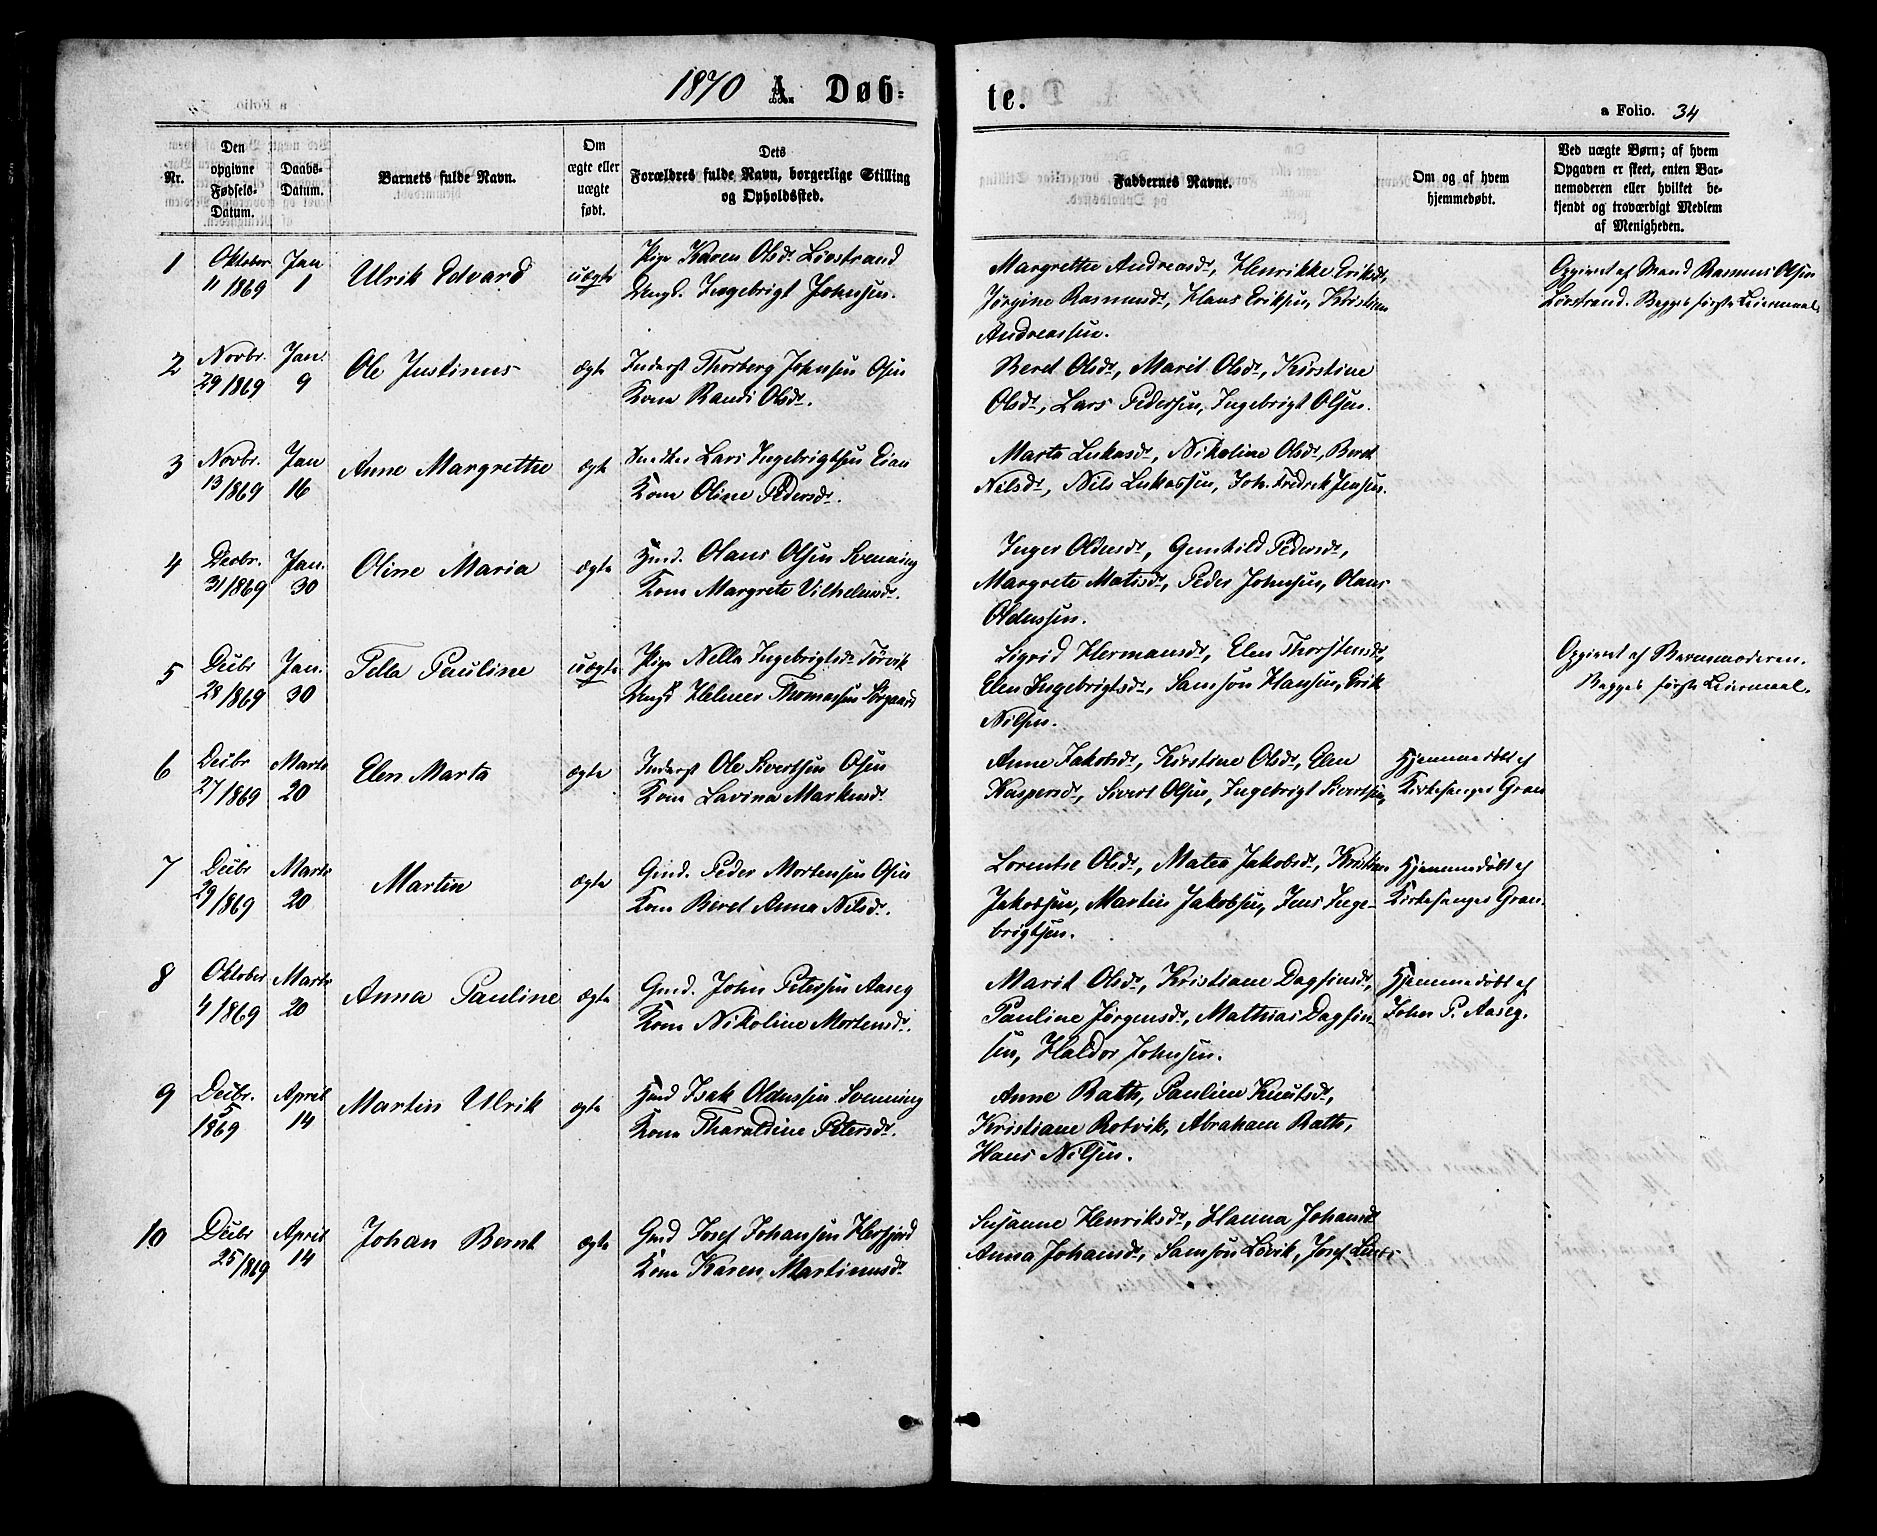 1870 A. Døb-
te.
a Folio. 34
Nr.
Den opgivne Fødsels-Datum.
Daabs-Datum.
Barnets fulde Navn.
Om ægte eller uægte født.
Dets Forældres fulde Navn, borgerlige Stilling og Opholdssted.
Faddernes Navne.
Om og af hvem hjemmedøbt.
Ved uægte Børn; af hvem Opgaven er skeet, enten Barnemoderen eller hvilket bekjendt og troværdigt Medlem af Menigheden.
1 Oktober 11/1869 Jan 1 Ulrik Edvard uægte
Pige Karen Olsdr Lövstrand
Ungk. Ingebrigt Johnsen.
Margrethe Andreasdr, Henrikke Eriksdr,
Jørgine Rasmusdr, Hans Eriksen, Kristian
Andreassen.
Opgivet af Mand Rasmus Olsen
Lövstrand. Begges første Leiermaal.
2 Novbr. 29/1869 Jan. 9 Ole Justinus ægte
Inderst Thorberg Johnsen Osen
Kone Randi Olsdr.
Beret Olsdr, Marit Olsdr, Kirstine
Olsdr, Lars Pedersen, Ingebrigt Olsen.
3 Novbr. 13/1869 Jan 16 Anne Margrethe ægte
Lars Ingebrigtsen Eian
Kone Oline Pedersdr.
Marta Lukasdr, Nikoline Olsdr, Beret
Nilsdr, Nils Lukassen, Joh. Fredrik Jensen.
4 Decbr. 31/1869 Jan. 30 Oline Maria ægte
Olaus Olsen Svenning
Kone Margrete Vilhelmsdr.
Inger Oldensdr, Gunhild Pedersdr,
Margrete Matisdr, Peder Johnsen, Olaus
Oldussen.
5 Decbr 28/1869 Jan. 30 Pella Pauline uægte
Pige Nella Ingebrigtsdr Sörvik
Ungk Helmer Thomassen Sörgaard
Sigrid Hermansdr, Elen Thorstensdr,
Elen Ingebrigtsdr, Samson Hansen, Erik
Nilsen.
Opgivet af Barnemoderen.
Begges første Leiermaal.
6 Decbr 27/1869 Marts 20 Elen Marta ægte
Inderst Ole Sivertsen Osen
Kone Lavina Markusdr.
Anne Jakobsdr, Kirstine Olsdr, Elen
Kaspersdr, Sivert Olsen, Ingebrigt Sivertsen,
Hjemmedøbt af
Kirkesanger Gran
7 Decbr 29/1869 Marts 20 Martin ægte
Gmd. Peder Mortensen Osen
Kone Beret Anna Nilsdr.
Lorentse Olsdr, Matea Jakobsdr, Kristian
Jakobsen, Martin Jakobsen, Jens Inge-
brigtsen.
Hjemmedøbt af
Kirkesanger Gran.
8 Oktober 4/1869 Marts 20 Anna Pauline ægte
Gmd. John Petersen Aaseg
Kone Nikoline Mortensdr.
Marit Olsdr, Kristiane Dagfinsdr,
Pauline Jørgensdr, Mathias Dagfin-
sen, Haldor Johnsen.
Hjemmedøbt af
John P. Aaseg.
9 Decbr. 5 1869 April 14 Martin Ulrik ægte
Isak Oldussen Svenning
Kone Tharaldine Petersdr.
Anne Rath, Pauline Knutsdr,
Kristiane Rotvik, Abraham Rath,
Hans Nilsen.
10 Decbr 25/1869 April 14 Johan Bernt ægte
Gmd Josef Johansen Hersfjord
Kone Karen Martinusdr
Susanne Henriksdr, Hanna Johansdr
Anna Johansdr, Samson Lövik, Josef